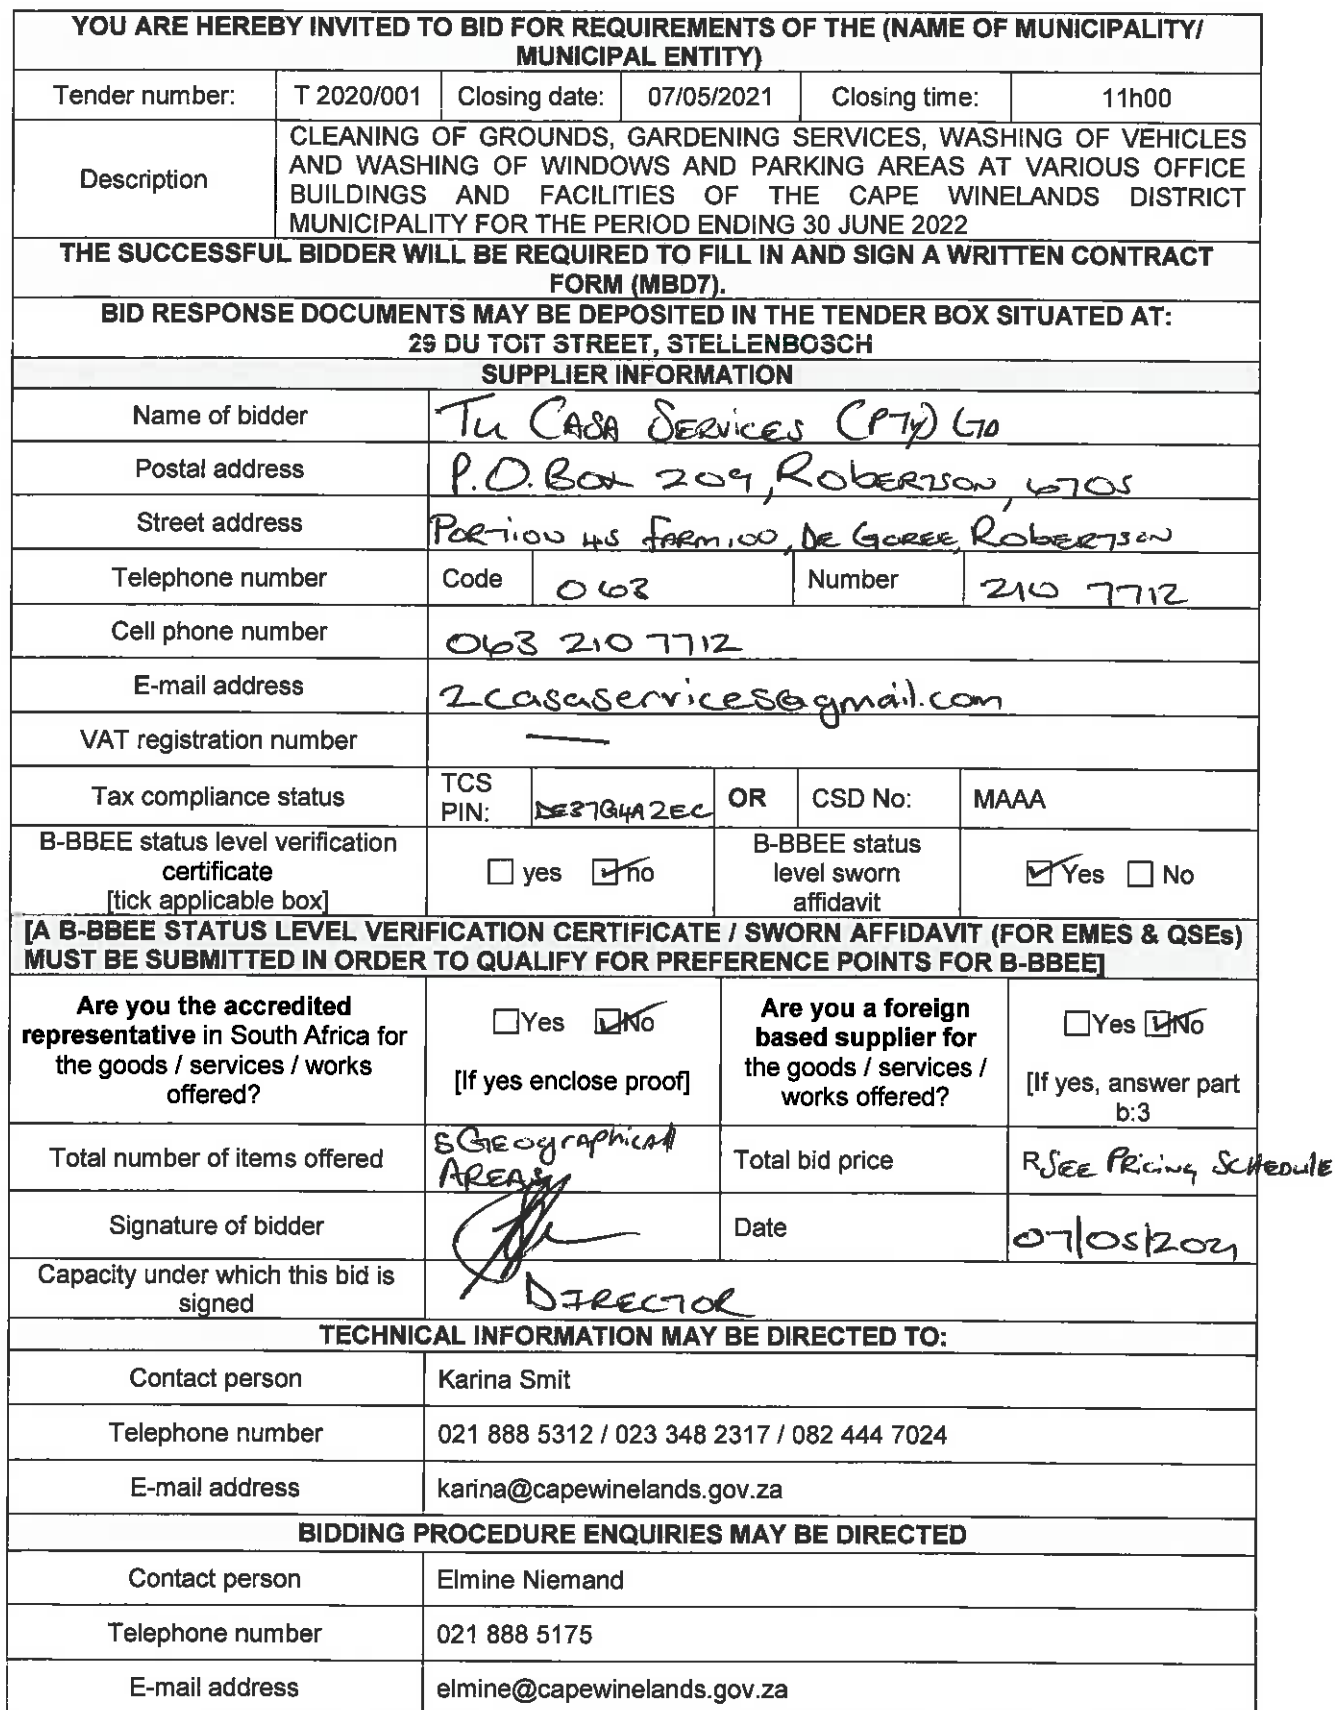 YOU ARE HEREBY INVITED TO BID FOR REQUIREMENTS OF THE (NAME OF MUNICIPALITY/
MUNICIPAL ENTITY)
Tender number: T 2020/001 Closing date: 07/05/2021 Closing time: 11h00
Description
CLEANING OF GROUNDS, GARDENING SERVICES, WASHING OF VEHICLES
AND WASHING OF WINDOWS AND PARKING AREAS AT VARIOUS OFFICE
BUILDINGS AND FACILITIES OF THE CAPE WINELANDS DISTRICT
MUNICIPALITY FOR THE PERIOD ENDING 30 JUNE 2022
THE SUCCESSFUL BIDDER WILL BE REQUIRED TO FILL IN AND SIGN A WRITTEN CONTRACT
FORM (MBD7).
BID RESPONSE DOCUMENTS MAY BE DEPOSITED IN THE TENDER BOX SITUATED AT:
29 DU TOIT STREET, STELLENBOSCH
SUPPLIER INFORMATION
Name of bidder Tu CASA SERVICES (PTY) LTD
Postal address P.O. BOX 209, ROBERTSON, 6705
Street address PORTION 45 FARM 100, DE GOREE, ROBERTSON
Telephone number Code 063 Number 210 7712
Cell phone number 063 210 7712
E-mail address 2casaservices@gmail.com
VAT registration number —
Tax compliance status
TCS
PIN: DE37G4A2EC OR CSD No: MAAA
B-BBEE status level verification
certificate
[tick applicable box]
yes no
B-BBEE status
level sworn
affidavit
Yes No
[A B-BBEE STATUS LEVEL VERIFICATION CERTIFICATE / SWORN AFFIDAVIT (FOR EMES & QSEs)
MUST BE SUBMITTED IN ORDER TO QUALIFY FOR PREFERENCE POINTS FOR B-BBEE]
Are you the accredited
representative in South Africa for
the goods / services / works
offered?
Yes No
[If yes enclose proof]
Are you a foreign
based supplier for
the goods / services /
works offered?
Yes No
[If yes, answer part
b:3
Total number of items offered
5 GEOgrAPhicAl
AREAS
Total bid price
R SEE PRicing SCHEDulE
Signature of bidder
Date 07/05/2021
Capacity under which this bid is
signed
DIRECTOR
TECHNICAL INFORMATION MAY BE DIRECTED TO:
Contact person Karina Smit
Telephone number 021 888 5312 / 023 348 2317 / 082 444 7024
E-mail address karina@capewinelands.gov.za
BIDDING PROCEDURE ENQUIRIES MAY BE DIRECTED
Contact person Elmine Niemand
Telephone number 021 888 5175
E-mail address elmine@capewinelands.gov.za